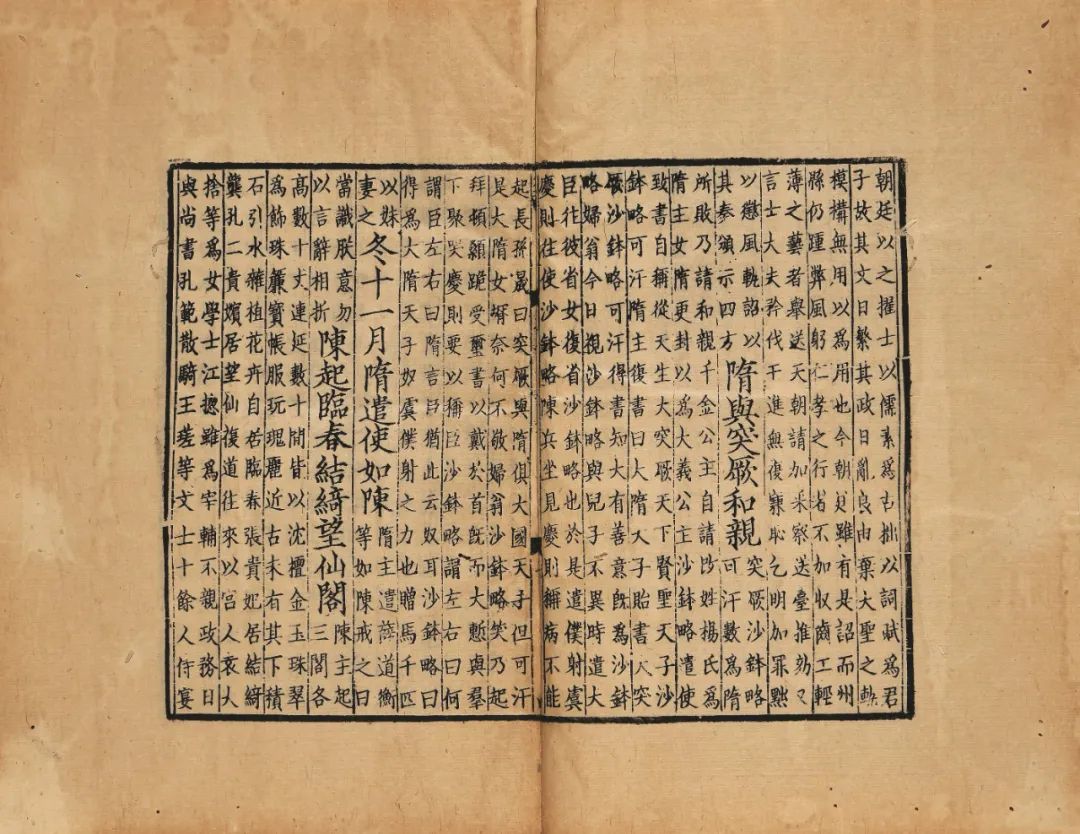 朝廷以之擢士以儒素爲古拙以詞賦爲君
子故其文日繁其政日亂良由棄大聖之軌
模搆無用以爲用也今朝廷雖有是詔而州
縣仍踵弊風躬仁孝之行者不加收齒工輕
薄之藝者舉送天朝請加采察送臺推劾又
言士大夫矜伐干進無復廉恥乞明加罪黜
以懲風軌詔以
其奏頒示四方
隋與突厥和親
突厥沙鉢略
可汗數爲隋
所敗乃請和親千金公主自請改姓楊氏爲
隋主女隋更封以爲大義公主沙鉢略遣使
致書自稱從天生大突厥天下賢聖天子沙
鉢略可汗隋主復書曰大隋天子貽書大突
厥沙鉢略可汗得書知大有善意既爲沙鉢
略婦翁今日視沙鉢略與兒子不異時遣大
臣往彼省女復省沙鉢略也於是遣僕射虞
慶則往使沙鉢略陳兵坐見慶則稱病不能
起長孫晟曰突厥與隋俱大國天子但可汗
是大隋女壻奈何不敬婦翁沙鉢略笑乃起
拜頓顙跪受璽書以戴於首既而大慙與羣
下聚哭慶則要以稱臣沙鉢略謂左右曰何
謂臣左右曰隋言臣猶此云奴耳沙鉢略曰
得爲大隋天子奴虞僕射之力也贈馬千匹
以妹
妻之
冬十一月隋遣使如陳
隋主遣薛道衡
等如陳戒之曰
當識朕意勿
以言辭相折
陳起臨春結綺望仙閣
陳主起
三閣各
高數十丈連延數十間皆以沈檀金玉珠翠
爲飾珠簾寶帳服玩瑰麗近古未有其下積
石引水雜植花卉自居臨春張貴妃居結綺
龔孔二貴嬪居望仙復道往來以宮人袁大
捨等爲女學士江揔雖爲宰輔不親政務日
與尚書孔範散騎王瑳等文士十餘人侍宴